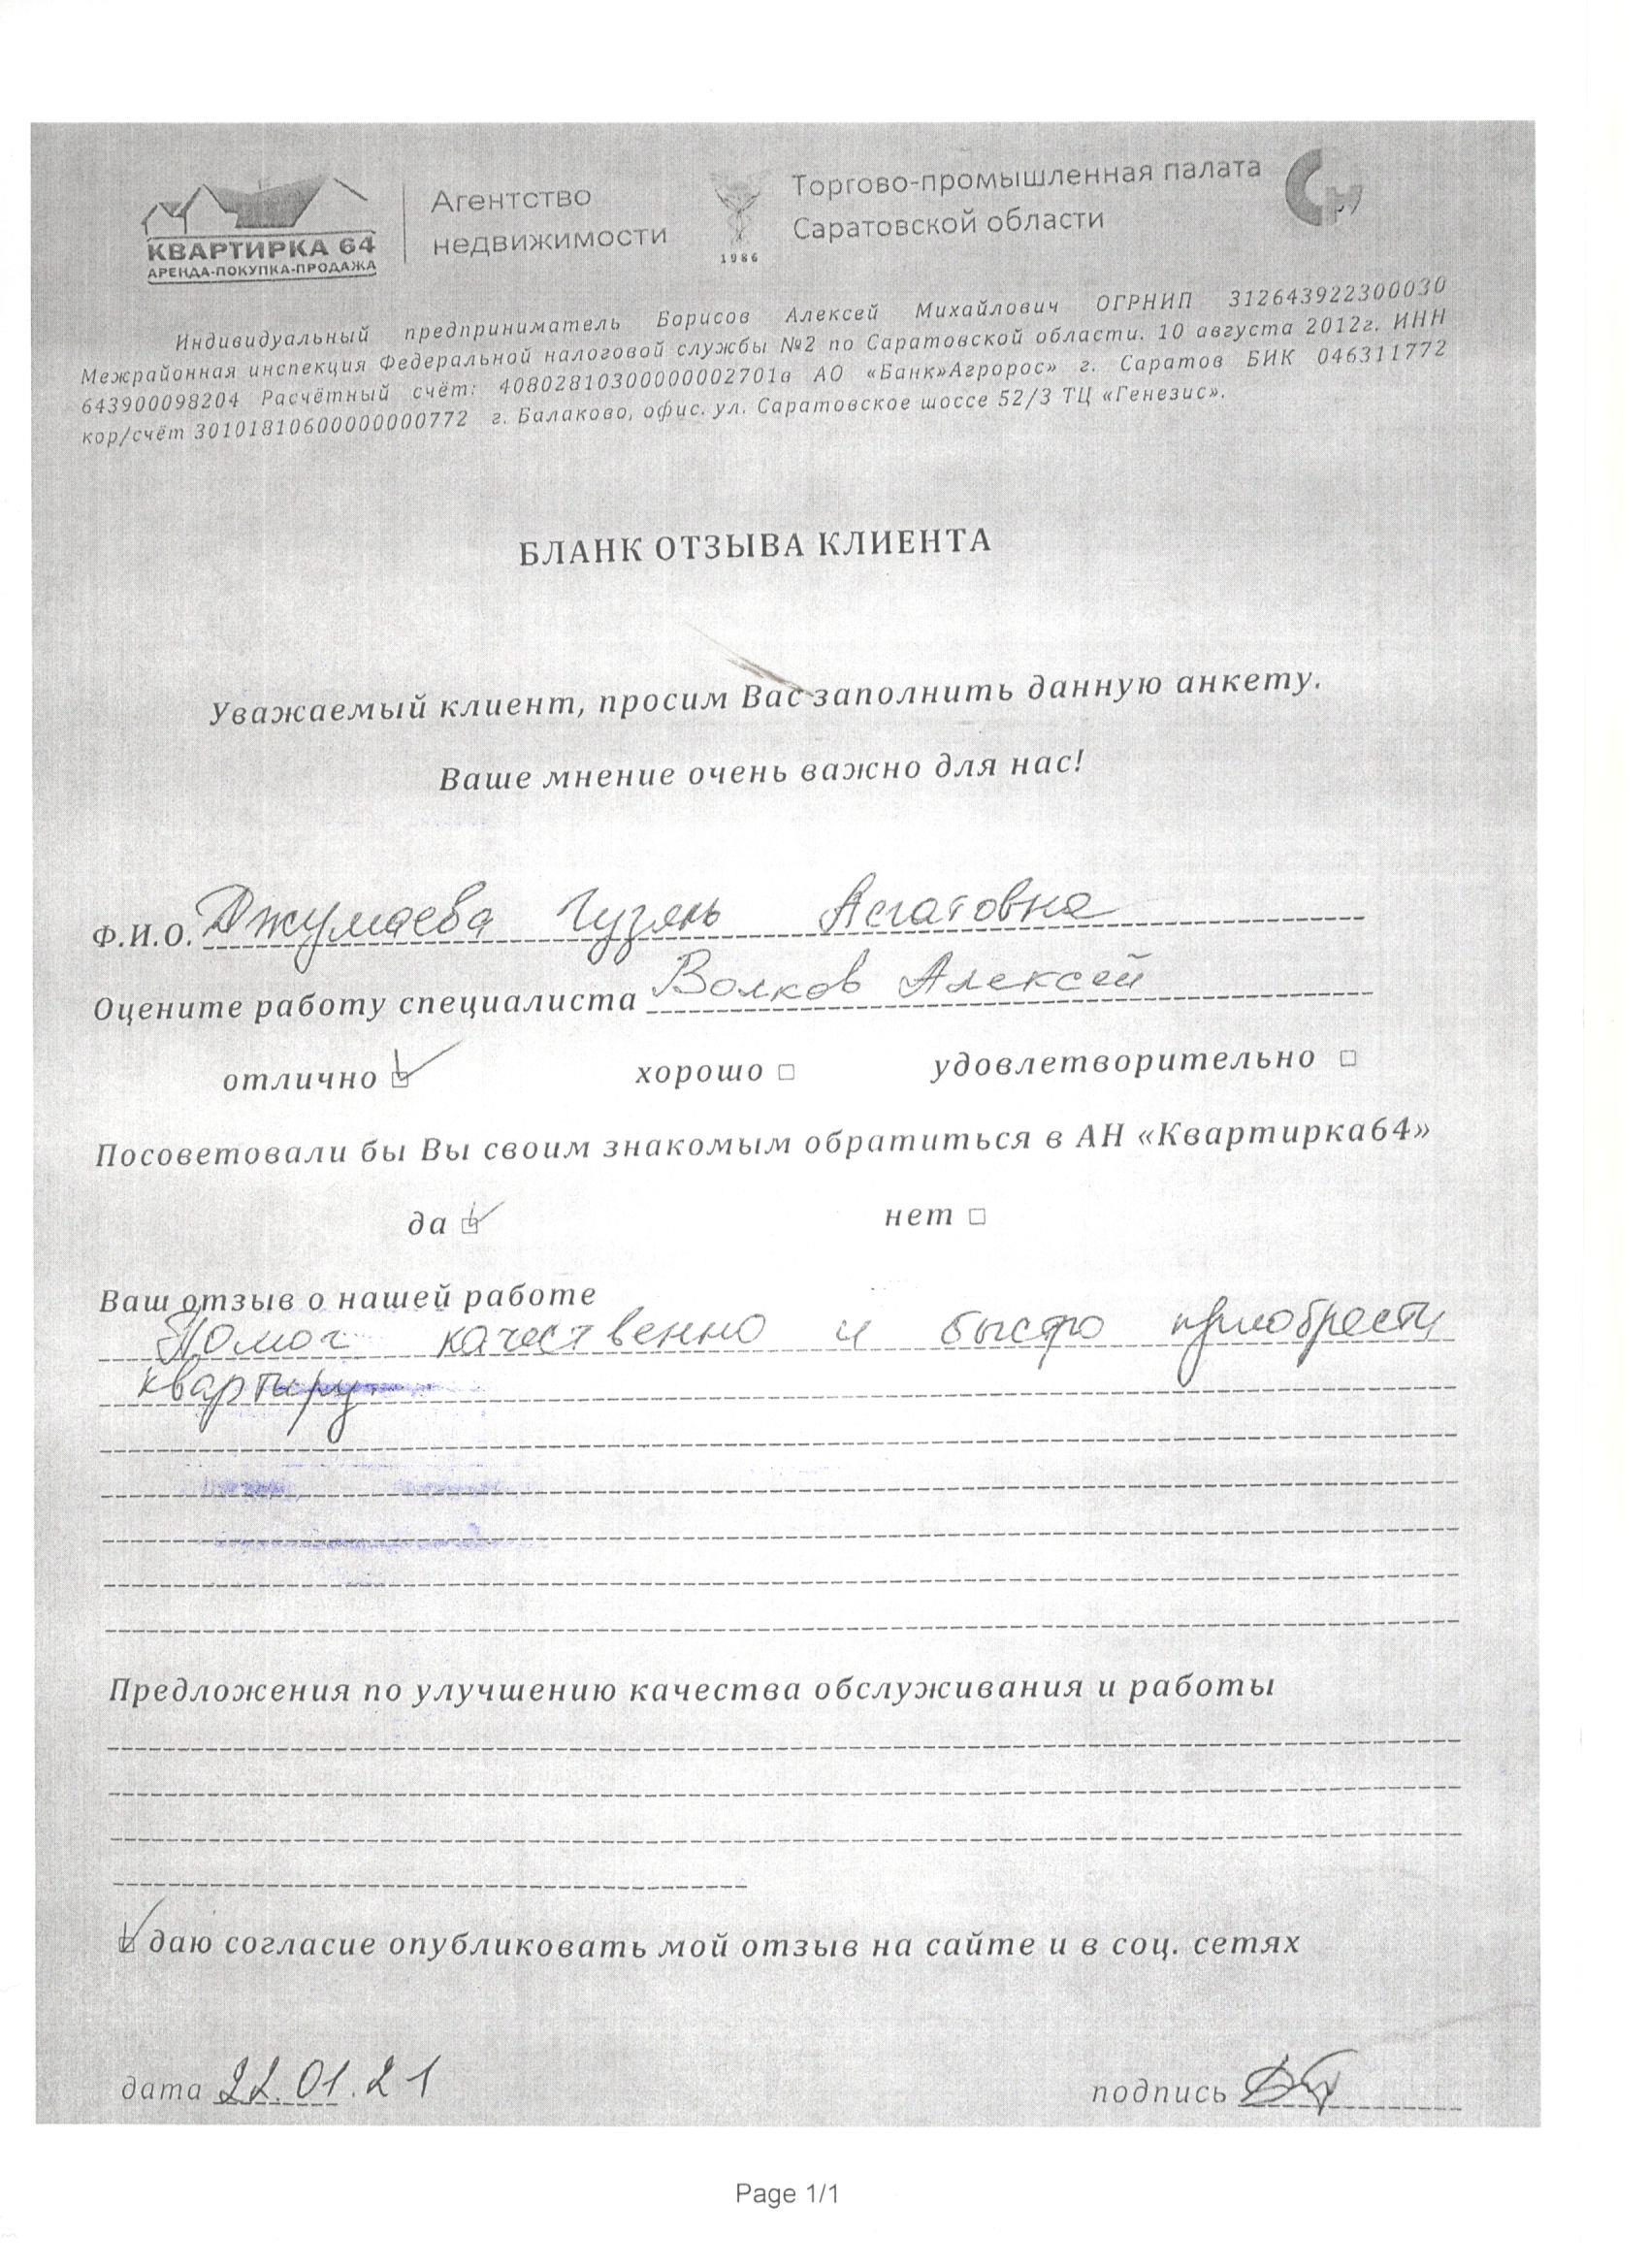 КВАРТИРКА 64
АРЕНДА-ПОКУПКА-ПРОДАЖА
Агентство
недвижимости
1986
Торгово-промышленная палата
Саратовской области
Индивидуальный предприниматель Борисов Алексей Михайлович ОГРНИП 312643922300030
Межрайонная инспекция Федеральной налоговой службы №2 по Саратовской области. 10 августа 2012г. ИНН
643900098204 Расчётный счёт: 40802810300000002701в АО «Банк»Агророс» г. Саратов БИК 046311772
кор/счёт 30101810600000000772 г. Балаково, офис. ул. Саратовское шоссе 52/3 ТЦ «Генезис».
БЛАНК ОТЗЫВА КЛИЕНТА
Уважаемый клиент, просим Вас заполнить данную анкету.
Ваше мнение очень важно для нас!
Ф.И.О. Джумаева Гузяль Асгатовна
Оцените работу специалиста Волков Алексей
отлично хорошо удовлетворительно
Посоветовали бы Вы своим знакомым обратиться в АН «Квартирка64»
да нет
Ваш отзыв о нашей работе
Помог качественно и быстро приобрести
квартиру
Предложения по улучшению качества обслуживания и работы
даю согласие опубликовать мой отзыв на сайте и в соц. сетях
дата 22.01.21 подпись
Page 1/1